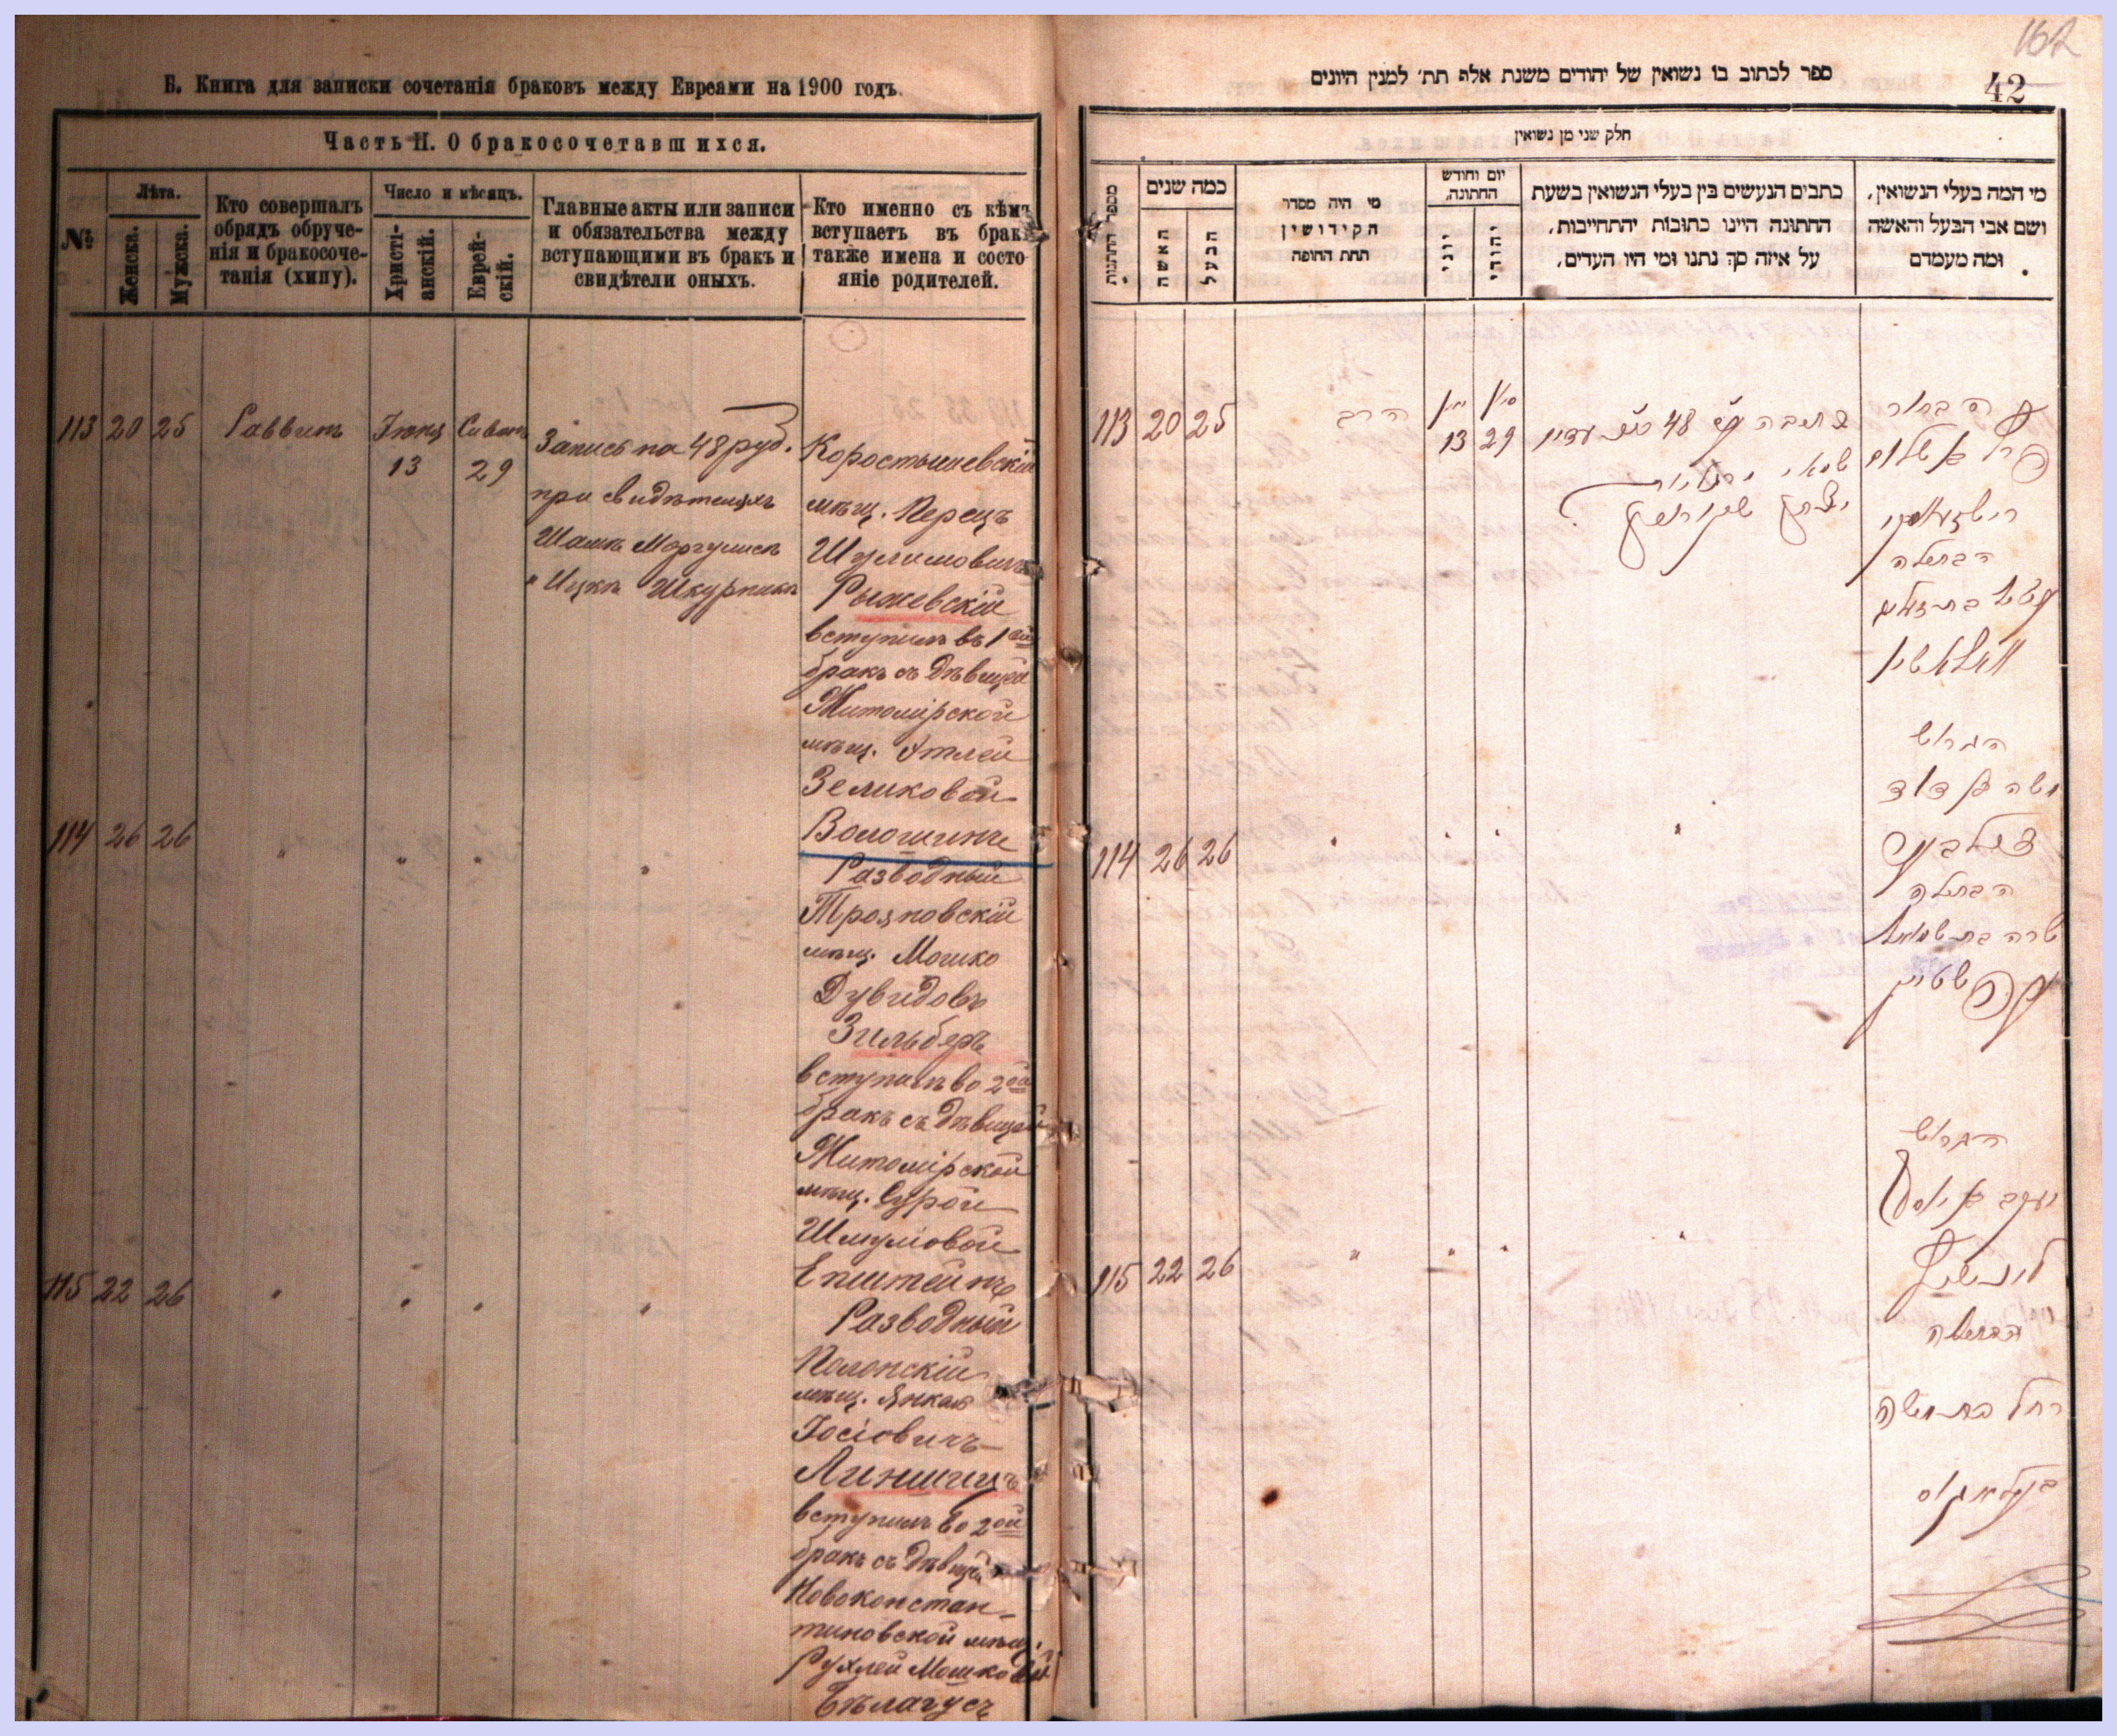 Б. Книга для записки сочетанія браковъ между Евреами на 1900 годъ.
Часть II. О бракосочетавшихся.
№
Лѣта.
Женска.
Мужска.
Кто совершалъ
обрядъ обруче-
нія и бракосоче-
танія (хипу).
Число и мѣсяцъ.
Христі-
анскій.
Еврей-
скій.
Главные акты или записи
и обязательства между
вступающими въ бракъ и
свидѣтели оныхъ.
Кто именно съ кѣмъ
вступаетъ въ бракъ
также имена и состо
яніе родителей.
113 20 25 Раввинъ Іюня 13 Сивонъ 29
Запись на 48 руб.
при свидѣтеляхъ
Шамъ Моргулисъ
" Ицкъ Шкурникъ
Коростышевскій
мѣщ. Перецъ
Шулимовичъ
Рыжевскій
вступилъ въ 1ый
бракъ съ дѣвицей
Житомірской
мѣщ. Этлей
Зеликовой
Волошинъ
114 26 26 " " " "
Разводный
Трояновскій
мѣщ. Мошко
Дувидовъ
Зильберъ
вступилъ во 2ой
бракъ съ дѣвицей
Житомірской
мѣщ. Сурой
Шмуловой
Епштейнъ
115 22 26 " " " "
Разводный
Полонскій
мѣщ. Янкель
Іосіовичъ
Линшицъ
вступилъ во 2ой
бракъ съ дѣвицей
Новоконстан-
тиновской мѣщ.
Рухлей Мошковой
Бѣлагусъ
162
42
ספר לכתוב בו נשואין של יהודים משנת אלף תת׳ למנין היונים
חלק שני מן נשואין
מספר החתנות
כמה שנים
האשה
הבעל
מי היה מסדר
הקידושין
תחת החופה
יום וחודש
החתונה,
יוני
יהודי
כתבים הנעשים בין בעלי הנשואין בשעת
החתונה היינו כתובות יהתחייבות,
על איזה סך נתנו ומי היו העדים,
מי המה בעלי הנשואין,
ושם אבי הבעל והאשה
ומה מעמדם
113 20 25 הרב 13 29
כתובה 48
הבתולה
114 26 26 " " " "
הגרוש
משה בן דוד
זילבער
הבתולה
שרה בת שמואל
עפשטיין
115 22 26 " " " "
הגרוש
יעקב בן יוסף
לינשיץ
הבתולה
רחל בת משה